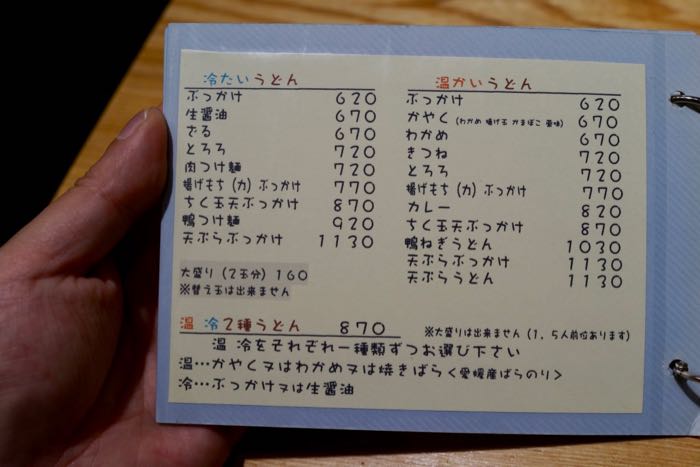 冷たいうどん
ぶっかけ 620
生醤油 670
でる 670
とろろ 720
肉つけ麺 720
揚げもち(力)ぶっかけ 770
ちく玉天ぶっかけ 870
鴨つけ麺 920
天ぷらぶっかけ 1130
大盛り(2玉分)160
※替え玉は出来ません
温かいうどん
ぶっかけ 620
かやく(わかめ 揚げ玉 かまぼこ 薬味) 670
わかめ 670
きつね 720
とろろ 720
揚げもち(力)ぶっかけ 770
カレー 820
ちく玉天ぶっかけ 870
鴨ねぎうどん 1030
天ぷらぶっかけ 1130
天ぷらうどん 1130
温 冷2種うどん 870 ※大盛りは出来ません(1,5人前位あります)
温 冷をそれぞれ一種類ずつお選び下さい
温…かやくヌはわかめヌは焼きばら<愛媛産ばらのり>
冷…ぶっかけヌは生醤油